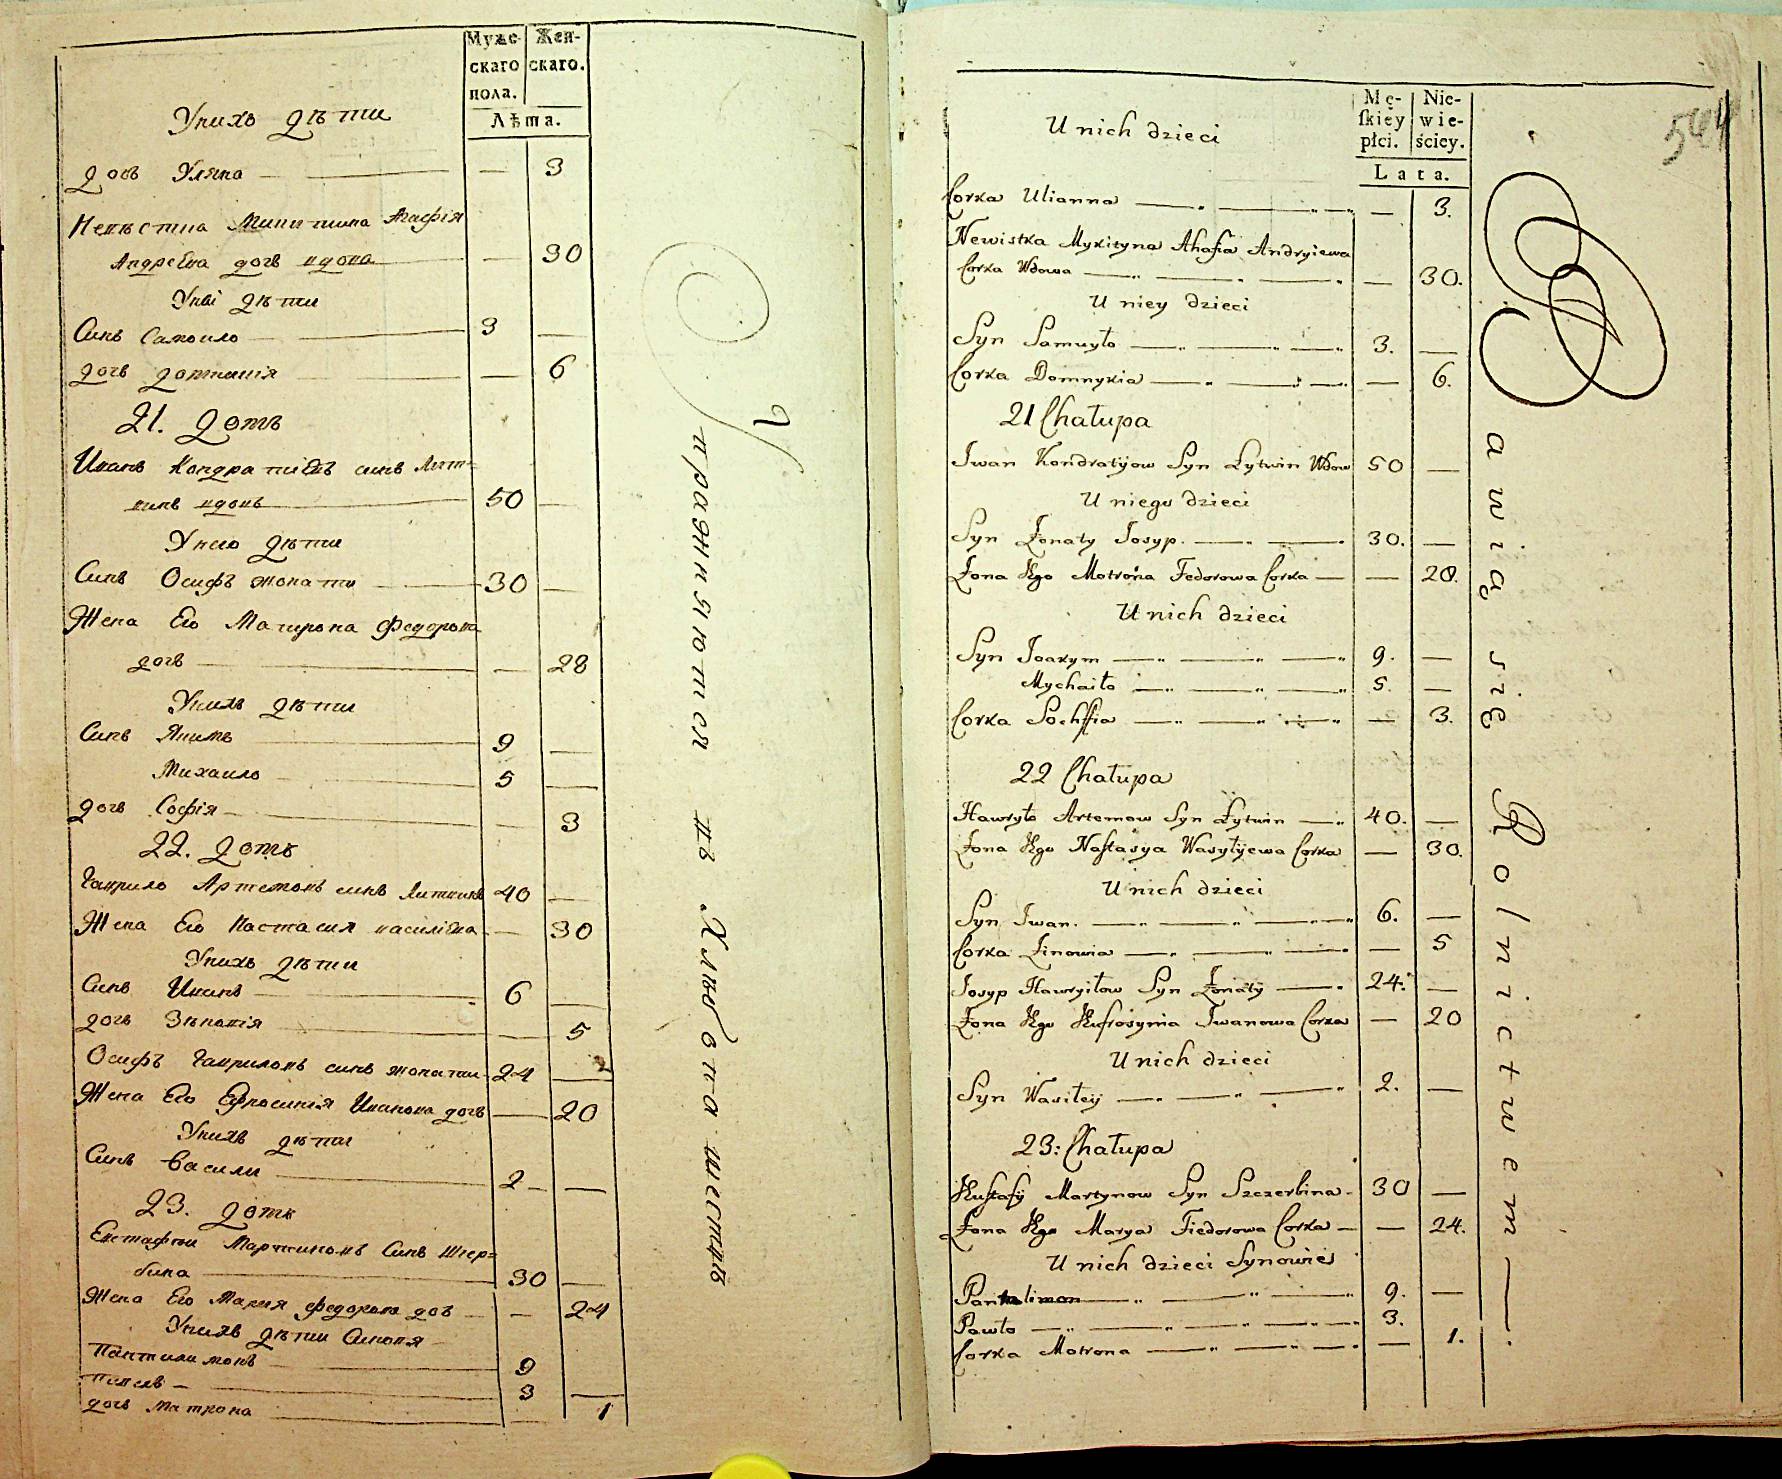 Муже-
скаго
пола.
Жен-
скаго.
Лѣта.
Унихъ дѣти
дочь Уляна — 3
Невѣстка Микитина Агафія
Андреева дочь вдова — 30
Уней дѣти
Синъ Самоило 3 —
дочь Домникія — 6
21. домъ
Иванъ Кондратіевъ синъ Лит-
винъ вдовъ 50 —
Унего дѣти
Синъ Осифъ жонати 30 —
Жена Его Матрона Федорова
дочь — 28
Унихъ дѣти
Синъ Якимъ 9 —
Михаило 5 —
дочь Софія — 3
22. домъ
Гаврило Артемовъ синъ Литвинъ 40 —
Жена Его Настасия василіева — 30
Унихъ дѣти
Синъ Иванъ 6 —
дочь Зѣновія — 5
Осифъ Гавриловъ синъ жонати 24 —
Жена Его Ефросинія Иванова дочь — 20
Унихъ дѣти
Синъ Васили 2 —
23. домъ
Евстафи Мартиновъ Синъ Щер-
бина 30 —
Жена Его Мария Федорова доч — 24
Унихъ дѣти Синовя
Пантилимонъ 9
Павелъ 3 —
дочь Матрона — 1
Упражняютися въ Хлѣбопашествѣ
564
U nich dzieci
Mę-
skiey
płci.
Nie-
wie-
ściey.
Lata.
Corka Ulianna — 3.
Newistka Mykityna Ahafia Andryiewa
Corka Wdowa — 30.
U niey dzieci
Syn Samuyło 3. —
Corka Domnykia — 6.
21 Chałupa
Iwan Kondratijow Syn Lytwin Wdow 50 —
U niego dzieci
Syn Żonaty Josyp. 30. —
Żona Jego Motrona Fedorowa Corka — 28.
U nich dzieci
Syn Joakym 9. —
Mychaiło 5. —
Corka Sochfia — 3.
22 Chałupa
Hawryło Artemow Syn Lytwin 40. —
Żona Jego Nastasya Wasylijewa Corka — 30.
U nich dzieci
Syn Iwan. 6. —
Corka Zinowia — 5
Josyp Hawryłow Syn Żonaty 24. —
Żona Jego Eufrosynia Iwanowa Corka — 20
U nich dzieci
Syn Wasiley 2. —
23: Chałupa
Eustafij Martynow Syn Szczerbina 30 —
Żona Jego Marya Fiedorowa Corka — 24.
U nich dzieci Synowie
Pantalimon 9. —
Pawło 3.
Corka Motrona — 1.
Bawią się Rolnictwem